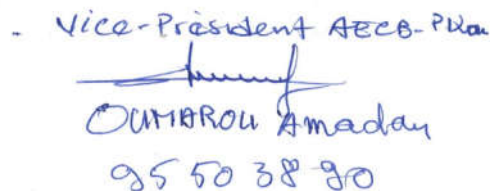 - Vice-Président AECB-PKou
OUMAROU Amadou
95 50 38 90